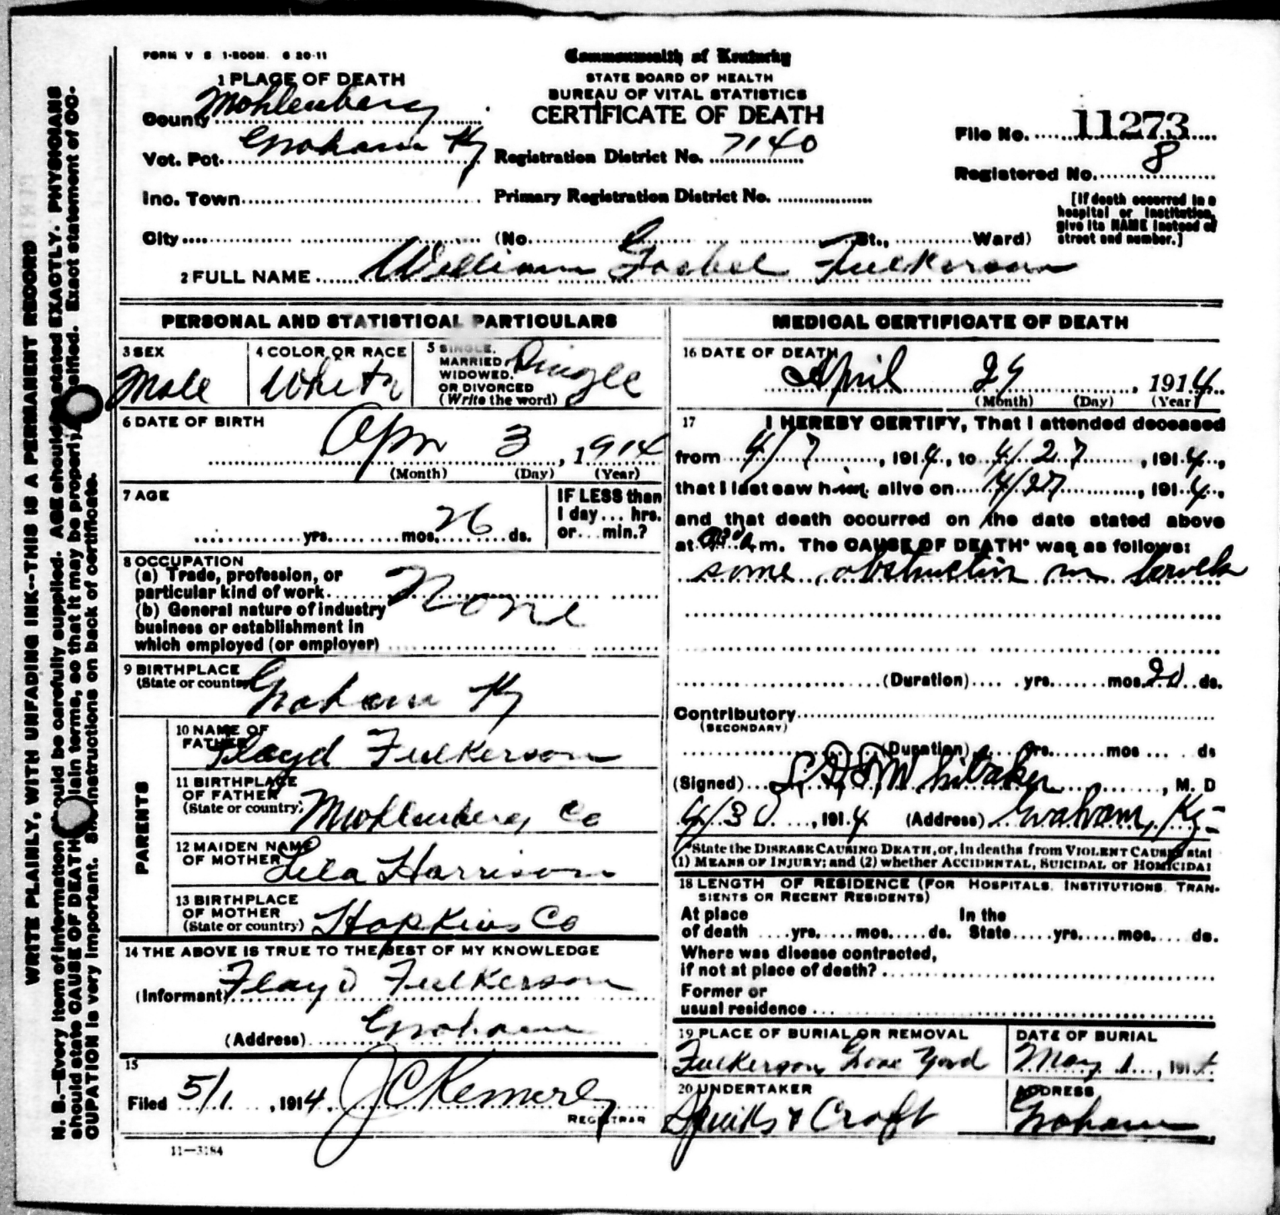 FORM V S 1-500M. 6 20-11
Commonwealth of Kentucky
STATE BOARD OF HEALTH
BUREAU OF VITAL STATISTICS
CERTIFICATE OF DEATH
1 PLACE OF DEATH
County Mohlenberg
Vot. Pct. Graham Ky
Registration District No. 7140
File No. 11273
Registered No. 8
Inc. Town
Primary Registration District No.
City (No. St., Ward)
[If death occurred in a
hospital or institution,
give its NAME instead of
street and number.]
2 FULL NAME William Goebel Fulkerson
PERSONAL AND STATISTICAL PARTICULARS
3 SEX
Male
4 COLOR OR RACE
White
5 SINGLE,
MARRIED,
WIDOWED,
OR DIVORCED
(Write the word)
Single
6 DATE OF BIRTH
Apr 3, 1914
(Month) (Day) (Year)
7 AGE
yrs. mos. 26 ds.
IF LESS than
1 day ... hrs.
or ... min.?
8 OCCUPATION
(a) Trade, profession, or
particular kind of work None
(b) General nature of industry
business or establishment in
which employed (or employer)
9 BIRTHPLACE
(State or country) Graham Ky
PARENTS
10 NAME OF
FATHER Floyd Fulkerson
11 BIRTHPLACE
OF FATHER
(State or country) Muohlenberg Co
12 MAIDEN NAME
OF MOTHER Lela Harrison
13 BIRTHPLACE
OF MOTHER
(State or country) Hopkins Co
14 THE ABOVE IS TRUE TO THE BEST OF MY KNOWLEDGE
(Informant) Floyd Fulkerson
(Address) Graham
15
Filed 5/1, 1914 J C Kemerly
REGISTRAR
11-3184
MEDICAL CERTIFICATE OF DEATH
16 DATE OF DEATH
April 29, 1914
(Month) (Day) (Year)
17 I HEREBY CERTIFY, That I attended deceased
from 4/7, 1914, to 4/27, 1914,
that I last saw him alive on 4/27, 1914,
and that death occurred on the date stated above
at m. The CAUSE OF DEATH* was as follows:
some obstruction in bowels
(Duration) yrs. mos. 20 ds.
Contributory
(SECONDARY)
(Duration) yrs. mos ds
(Signed) Whitaker, M. D
4/30, 1914 (Address) Graham, Ky-
*State the DISEASE CAUSING DEATH, or, in deaths from VIOLENT CAUSES stat
(1) MEANS OF INJURY; and (2) whether ACCIDENTAL, SUICIDAL or HOMICIDAL
18 LENGTH OF RESIDENCE (FOR HOSPITALS, INSTITUTIONS, TRAN-
SIENTS OR RECENT RESIDENTS)
At place
of death yrs. mos. ds.
In the
State yrs. mos. ds.
Where was disease contracted,
if not at place of death?
Former or
usual residence
19 PLACE OF BURIAL OR REMOVAL
Fulkerson Grave Yard
DATE OF BURIAL
May 1, 1914
20 UNDERTAKER
Spinks & Croft
ADDRESS
Graham
WRITE PLAINLY, WITH UNFADING INK--THIS IS A PERMANENT RECORD
N. B.--Every item of information should be carefully supplied. AGE should be stated EXACTLY. PHYSICIANS
should state CAUSE OF DEATH in plain terms, so that it may be properly classified. Exact statement of OC-
CUPATION is very important. See instructions on back of certificate.